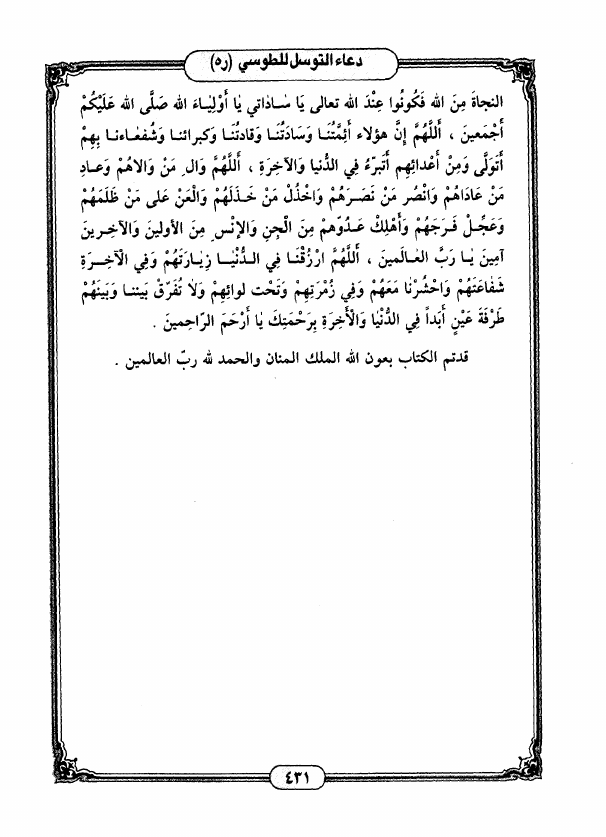 دعاء التوسل للطوسي (ره)
النجاةَ مِنَ الله فَكُونُوا عِنْدَ الله تعالى يَا سَادَاتي يَا أَوْلِيَاءَ الله صَلَّى الله عَلَيْكُمْ
أَجْمَعينَ ، أَللَّهُمَّ إِنَّ هؤلاء أَئِمَّتُنَا وَسَادَتُنَا وَقادتُنَا وَكبرائنا وَشُفعاءنا بِهِمْ
أَتَوَلَّى وَمِنْ أَعْدائِهِم أَتبرّءُ فِي الدُّنْيا وَالآخِرَةِ ، أَللَّهُمَّ وَالِ مَنْ وَالاهُمْ وَعادِ
مَنْ عَادَاهُمْ وَانْصُر مَنْ نَصَرَهُمْ وَاخْذُلْ مَنْ خَذَلَهُمْ وَالْعَنْ عَلى مَنْ ظَلَمَهُمْ
وَعَجِّلْ فَرَجَهُمْ وَأَهْلِكْ عَدُوّهِمْ مِنَ الْجِنِ وَالإِنْسِ مِنَ الأولينَ وَالآخِرينَ
آمِينَ يَا رَبَّ العَالَمينَ ، أَللَّهُمَّ ارْزُقْنَا فِي الدُّنْيَا زِيَارَتَهُمْ وَفِي الْآخِرَةِ
شَفَاعَتَهُمْ وَاحْشُرْنَا مَعَهُمْ وَفِي زُمْرَتِهِمْ وَتَحْت لوائِهِمْ وَلَا تُفَرّقْ بَيننا وَبَينَهُمْ
طَرْفَةَ عَيْنٍ أَبَداً فِي الدُّنْيَا وَالْآخِرَةِ بِرَحْمَتِكَ يَا أَرْحَمَ الرّاحِمينَ .
قدتم الكتاب بعون الله الملك المنان والحمد لله ربّ العالمين .
٤٣١